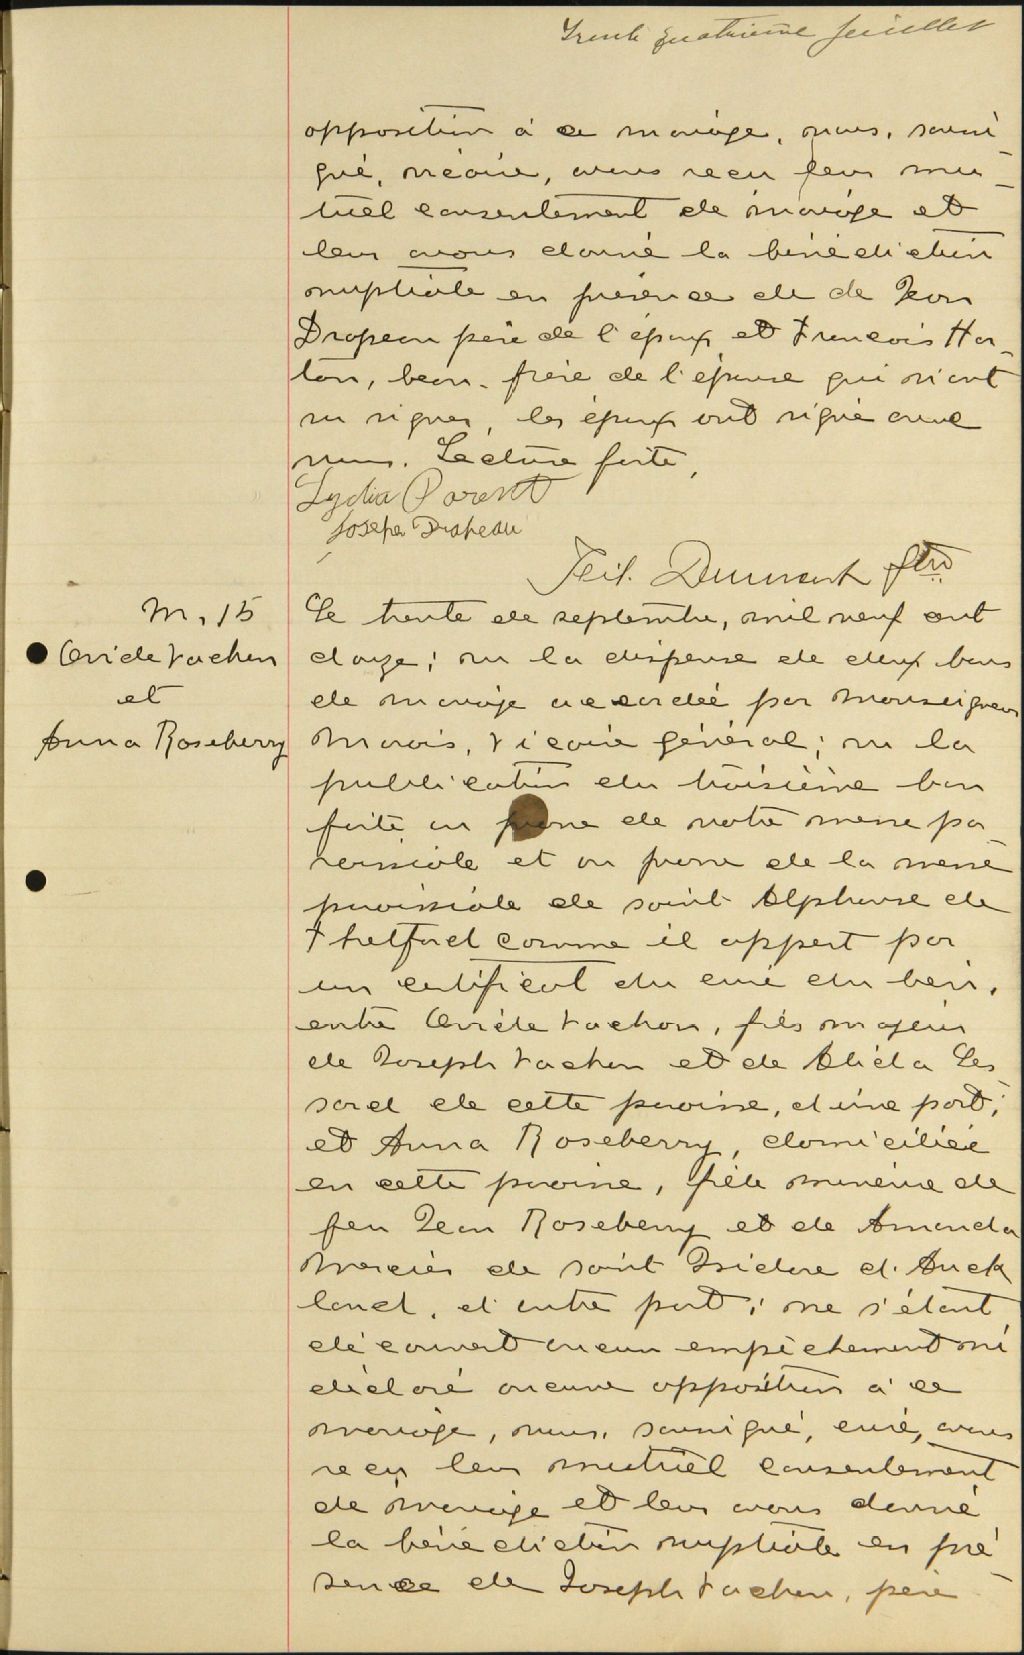 Trente quatrième feuillet
opposition à ce mariage, nous, soussi-
gné, vicaire, avons reçu leur mu-
tuel consentement de mariage et
leur avons donné la bénédiction
nuptiale en présence de de Jean
Drapeau père de l'époux et François
beau-frère de l'épouse qui n'ont
su signer, les époux ont signé avec
nous. Lecture faite,
Lydia Parent
Joseph Drapeau
Dumont ptre
M. 15
Ovide Vachon
et
Anna Roseberry
Le trente de septembre, mil neuf cent
douze; vu la dispense de deux bans
de mariage accordée par Monseigneur
Marois, Vicaire général; vu la
publication du troisième ban
faite au prône de notre messe pa-
roissiale et au prône de la messe
paroissiale de saint Alphonse de
Thetford comme il appert par
un certificat du curé du lieu,
entre Ovide Vachon, fils majeur
de Joseph Vachon et de Alida Les-
sard de cette paroisse, d'une part;
et Anna Roseberry, domiciliée
en cette paroisse, fille mineure de
feu Jean Roseberry et de Amanda
Mercier de saint Isidore d'Auck
land, d'autre part; ne s'étant
découvert aucun empêchement ni
déclaré aucune opposition à ce
mariage, nous, soussigné, curé, avons
reçu leur mutuel consentement
de mariage et leur avons donné
la bénédiction nuptiale en pré
sence de Joseph Vachon, père